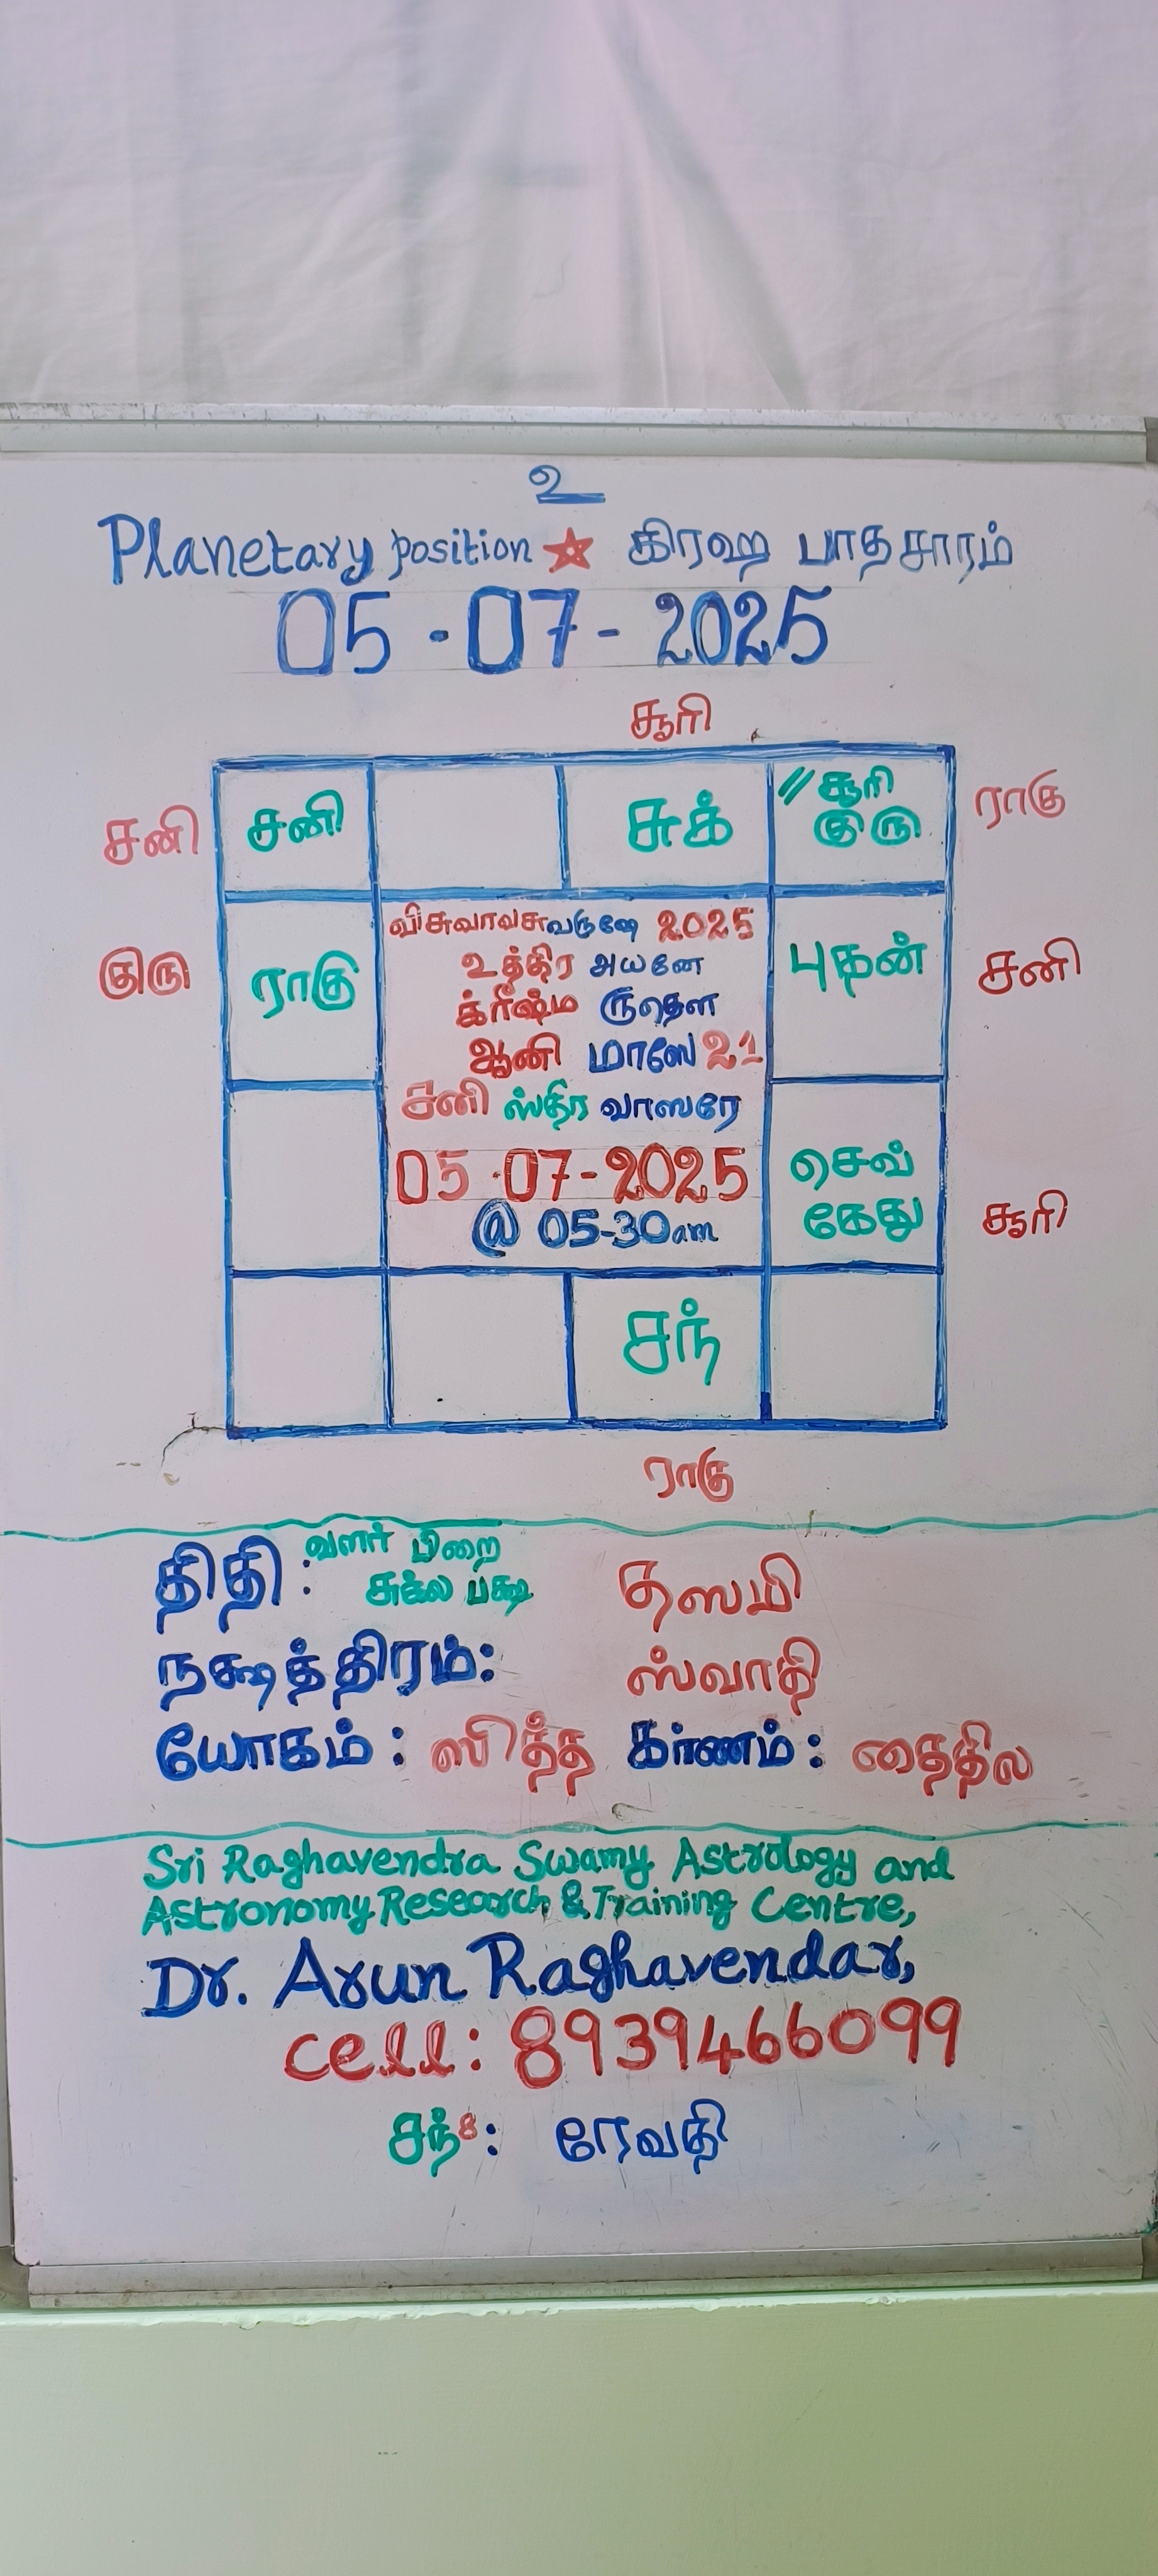 உ
Planetary position ★ கிரஹ பாதசாரம்
05-07-2025
சூரி
சனி சனி சுக் // சூரி ராகு
குரு
குரு ராகு விசுவாவசுவருஷே 2025 புதன் சனி
உத்திர அயனே
க்ரீஷ்ம ருதௌ
ஆனி மாஸே 21
சனி ஸ்திர வாஸரே
05-07-2025 செவ்
கேது சூரி
@ 05-30am
சந்
ராகு
திதி: வளர் பிறை
சுக்ல பக்ஷ தஸமி
நக்ஷத்திரம்: ஸ்வாதி
யோகம்: ஸித்த கர்ணம்: தைதில
Sri Raghavendra Swamy Astrology and
Astronomy Research & Training Centre,
Dr. Arun Raghavendar,
cell: 8939466099
சந்8: ரேவதி